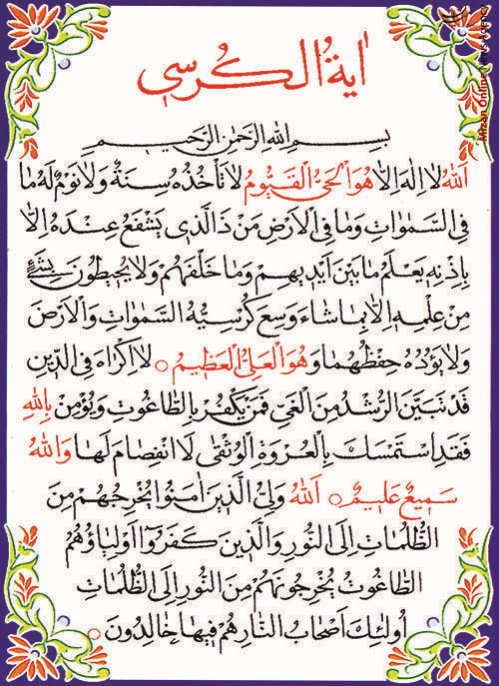 اٰيةُ الكُرسي
بِسمِ اللهِ الرَحمٰنِ الرَّحيمِ
اَللهُ لا اِلٰهَ اِلاّ هُوَ الحَيُّ القَيُّومُ لا تَأخُذُهُ سِنَةٌ وَلا نَومٌ لَهُ ما
فِي السَّمٰواتِ وَما فِي الاَرضِ مَن ذَا الَّذي يَشفَعُ عِندَهُ اِلاّ
بِاِذنِهِ يَعلَمُ ما بَينَ اَيديهِم وَما خَلفَهُم وَلا يُحيطُونَ بِشَيءٍ
مِن عِلمِهِ اِلاّ بِما شاءَ وَسِعَ كُرسِيُّهُ السَّمٰواتِ وَالاَرضَ
وَلا يَؤُدُهُ حِفظُهُما وَهُوَ العَلِيُّ العَظيمُ ○ لا اِكراهَ فِي الدّينِ
قَد تَبَيَّنَ الرُّشدُ مِنَ الغَيِّ فَمَن يَكفُر بِالطّاغُوتِ وَيُؤمِن بِاللهِ
فَقَدِ استَمسَكَ بِالعُروَةِ الوُثقٰى لاَ انفِصامَ لَها وَاللهُ
سَميعٌ عَليمٌ ○ اَللهُ وَلِيُّ الَّذينَ اٰمَنُوا يُخرِجُهُم مِنَ
الظُّلُماتِ اِلَى النُّورِ وَالَّذينَ كَفَرُوا اَولِياؤُهُمُ
الطّاغُوتُ يُخرِجُونَهُم مِنَ النُّورِ اِلَى الظُّلُماتِ
اُولٰئِكَ اَصحابُ النّارِ هُم فيها خالِدُونَ ○
Mizan Online